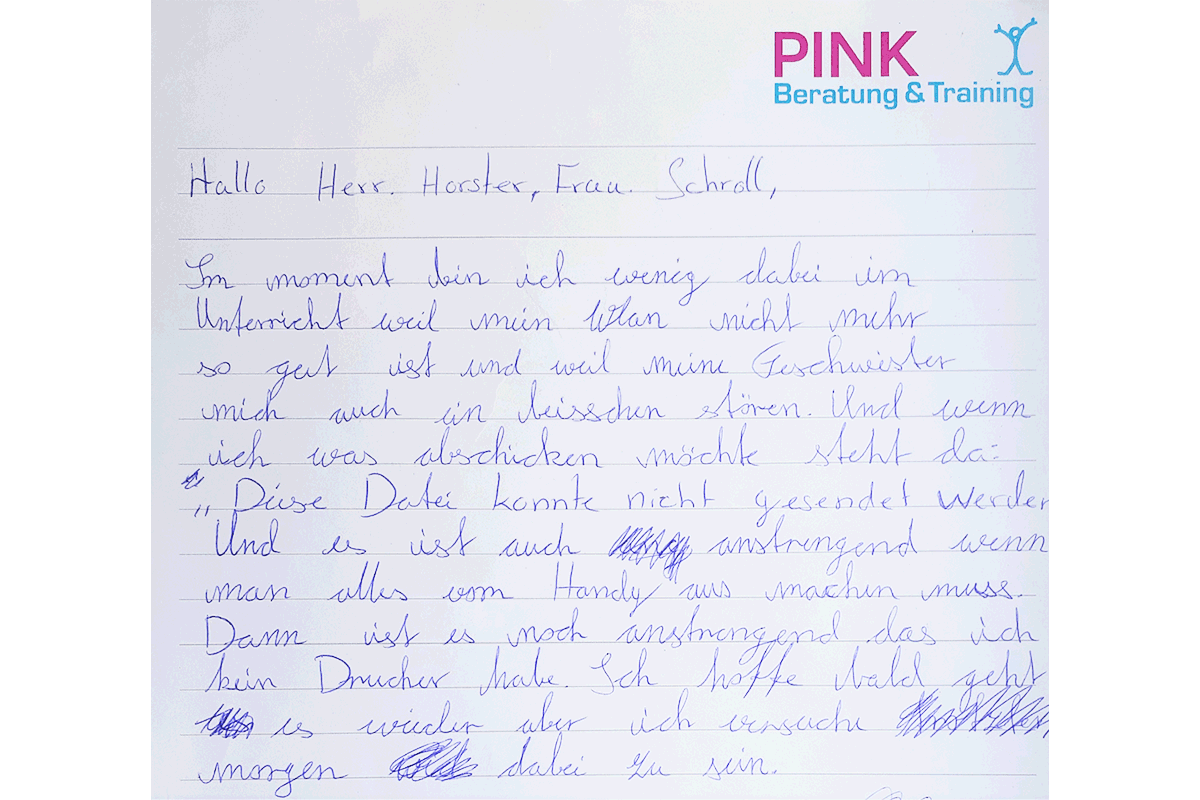 PINK
Beratung & Training
Hallo Herr. Horster, Frau. Schroll,
Im moment bin ich wenig dabei im
Unterricht weil mein Wlan nicht mehr
so gut ist und weil meine Geschwister
mich auch ein bisschen stören. Und wenn
ich was abschicken möchte steht da:
„Diese Datei konnte nicht gesendet werden
Und es ist auch anstrengend wenn
man alles vom Handy aus machen muss.
Dann ist es noch anstrengend das ich
kein Drucker habe. Ich hoffe bald geht
es wieder aber ich versuche
morgen dabei zu sein.